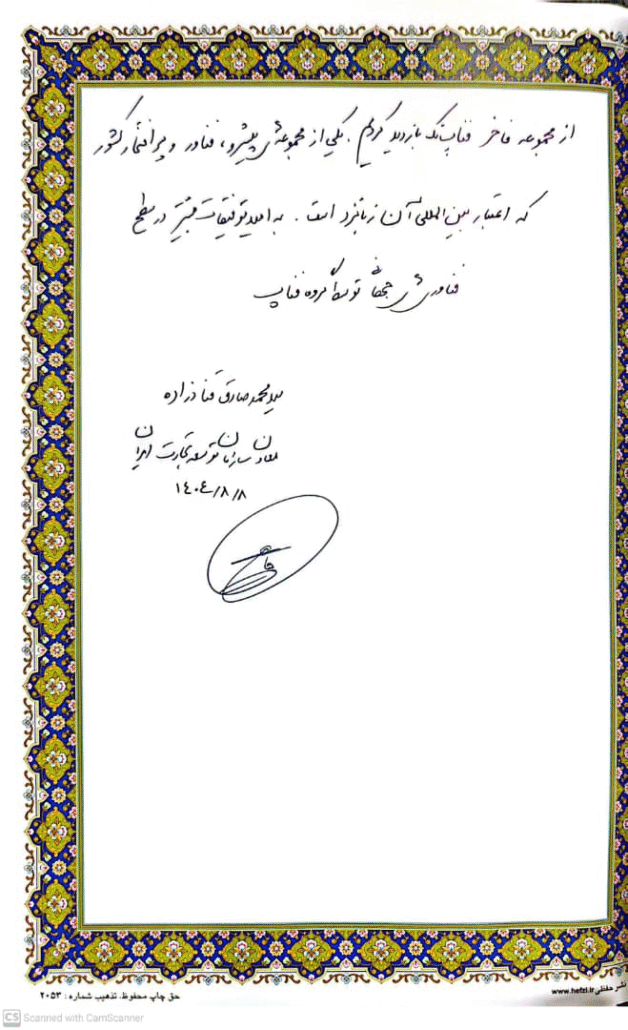 از مجموعه فاخر فناپ‌تک بازدید کردیم. یکی از مجموعه‌های پیشرو، فناور و پر افتخار کشور
که اعتبار بین‌المللی آن زبانزد است. به امید توفیقات بیشتر در سطح
فناوری‌های جهانی توسط گروه فناپ
محمدصادق قنادزاده
معاون سازمان توسعه تجارت ایران
۱۴۰۴/۸/۸
حق چاپ محفوظ، تذهیب شماره : ۲۰۵۳
نشر حفظی www.hefzi.ir
CS Scanned with CamScanner